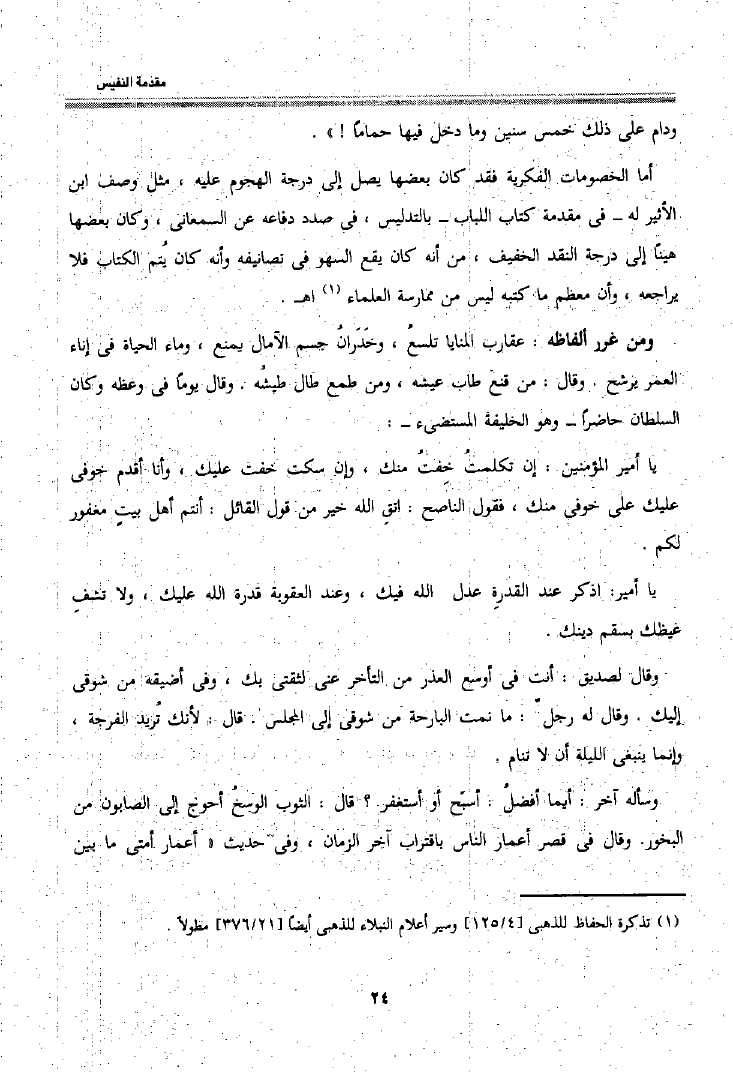 مقدمة النفيس
ودام على ذلك خمس سنين وما دخل فيها حمامًا ! » .
أما الخصومات الفكرية فقد كان بعضها يصل إلى درجة الهجوم عليه ، مثل وصف ابن
الأثير له ــ فى مقدمة كتاب اللباب ــ بالتدليس ، فى صدد دفاعه عن السمعانى ، وكان بعضها
هينًا إلى درجة النقد الخفيف ، من أنه كان يقع السهو فى تصانيفه وأنه كان يُتم الكتاب فلا
يراجعه ، وأن معظم ما كتبه ليس من ممارسة العلماء (١) اهـ .
ومن غرر ألفاظه : عقارب المنايا تلسعُ ، وخَدَرانُ جسم الآمال يمنع ، وماء الحياة فى إناء
العمر يرشح . وقال : من قنع طاب عيشه ، ومن طمع طال طيشُه . وقال يومًا فى وعظه وكان
السلطان حاضرًا ــ وهو الخليفة المستضىء ــ :
يا أمير المؤمنين : إن تكلمتُ خِفتُ منك ، وإن سكت خفت عليك ، وأنا أقدم خوفى
عليك على خوفى منك ، فقول الناصح : اتقِ الله خير من قول القائل : أنتم أهل بيتٍ مغفور
لكم .
يا أمير: اذكر عند القدرةِ عدل الله فيك ، وعند العقوبة قدرة الله عليك ، ولا تشفِ
غيظك بسقم دينك .
وقال لصديق : أنت فى أوسع العذر من التأخر عنى لثقتى بك ، وفى أضيقه من شوقى
إليك . وقال له رجلٌ : ما نمت البارحة من شوقى إلى المجلس . قال : لأنك تُريد الفرجة ،
وإنما ينبغى الليلة أن لا تنام .
وسأله آخر : أيما أفضلُ : أسبّح أو أستغفر ؟ قال : الثوب الوسخُ أحوج إلى الصابون من
البخور. وقال فى قصر أعمار الناس باقتراب آخر الزمان ، وفى حديث « أعمار أمتى ما بين
(١) تذكرة الحفاظ للذهبى [١٢٥/٤] وسير أعلام النبلاء للذهبى أيضًا [٣٧٦/٢١] مطولاً .
٢٤